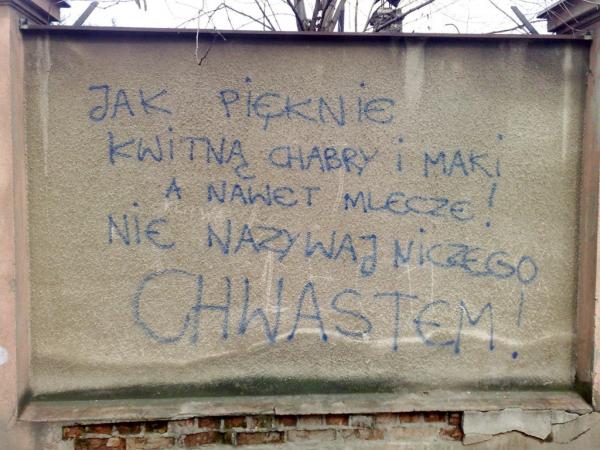 JAK PIĘKNIE
KWITNĄ CHABRY i MAKI
A NAWET MLECZE!
NIE NAZYWAJ NICZEGO
CHWASTEM!